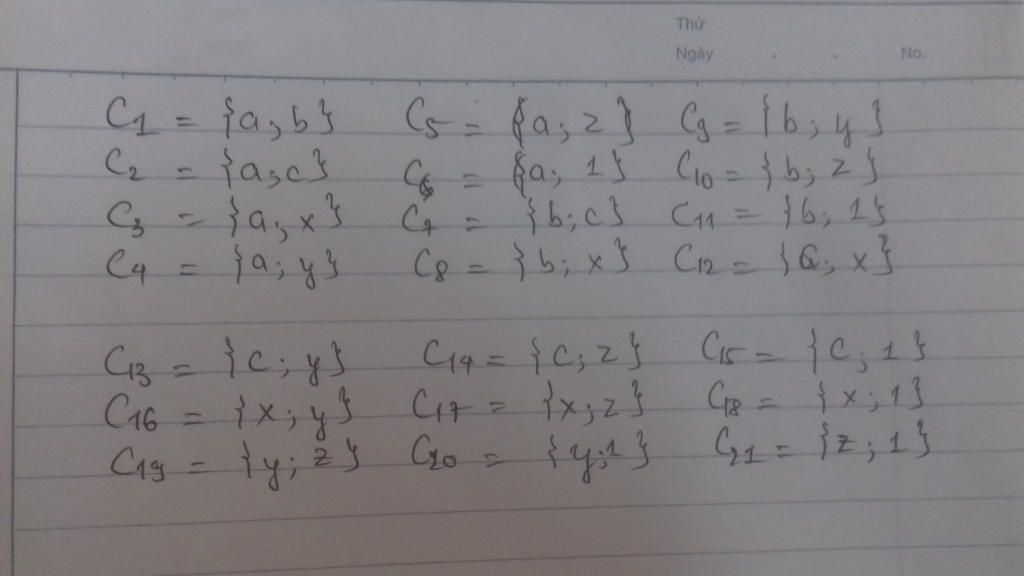 Thứ
Ngày . . No.
C1 = {a; b} C5 = {a; z} C9 = {b; y}
C2 = {a; c} C6 = {a; 1} C10 = {b; z}
C3 = {a; x} C7 = {b; c} C11 = {b; 1}
C4 = {a; y} C8 = {b; x} C12 = {c; x}
C13 = {c; y} C14 = {c; z} C15 = {c; 1}
C16 = {x; y} C17 = {x; z} C18 = {x; 1}
C19 = {y; z} C20 = {y; 1} C21 = {z; 1}